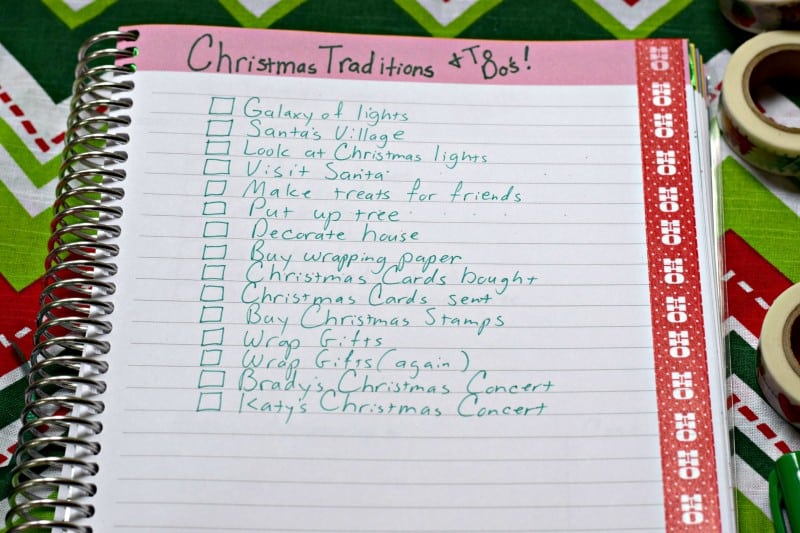 Christmas Traditions & T Do's!
Galaxy of lights
Santa's Village
Look at Christmas lights
Visit Santa
Make treats for friends
Put up tree
Decorate house
Buy wrapping paper
Christmas Cards bought
Christmas Cards sent
Buy Christmas Stamps
Wrap Gifts
Wrap Gifts (again)
Brady's Christmas Concert
Katy's Christmas Concert
HO
HO
HO
HO
HO
HO
HO
HO
HO
HO
HO
HO
HO